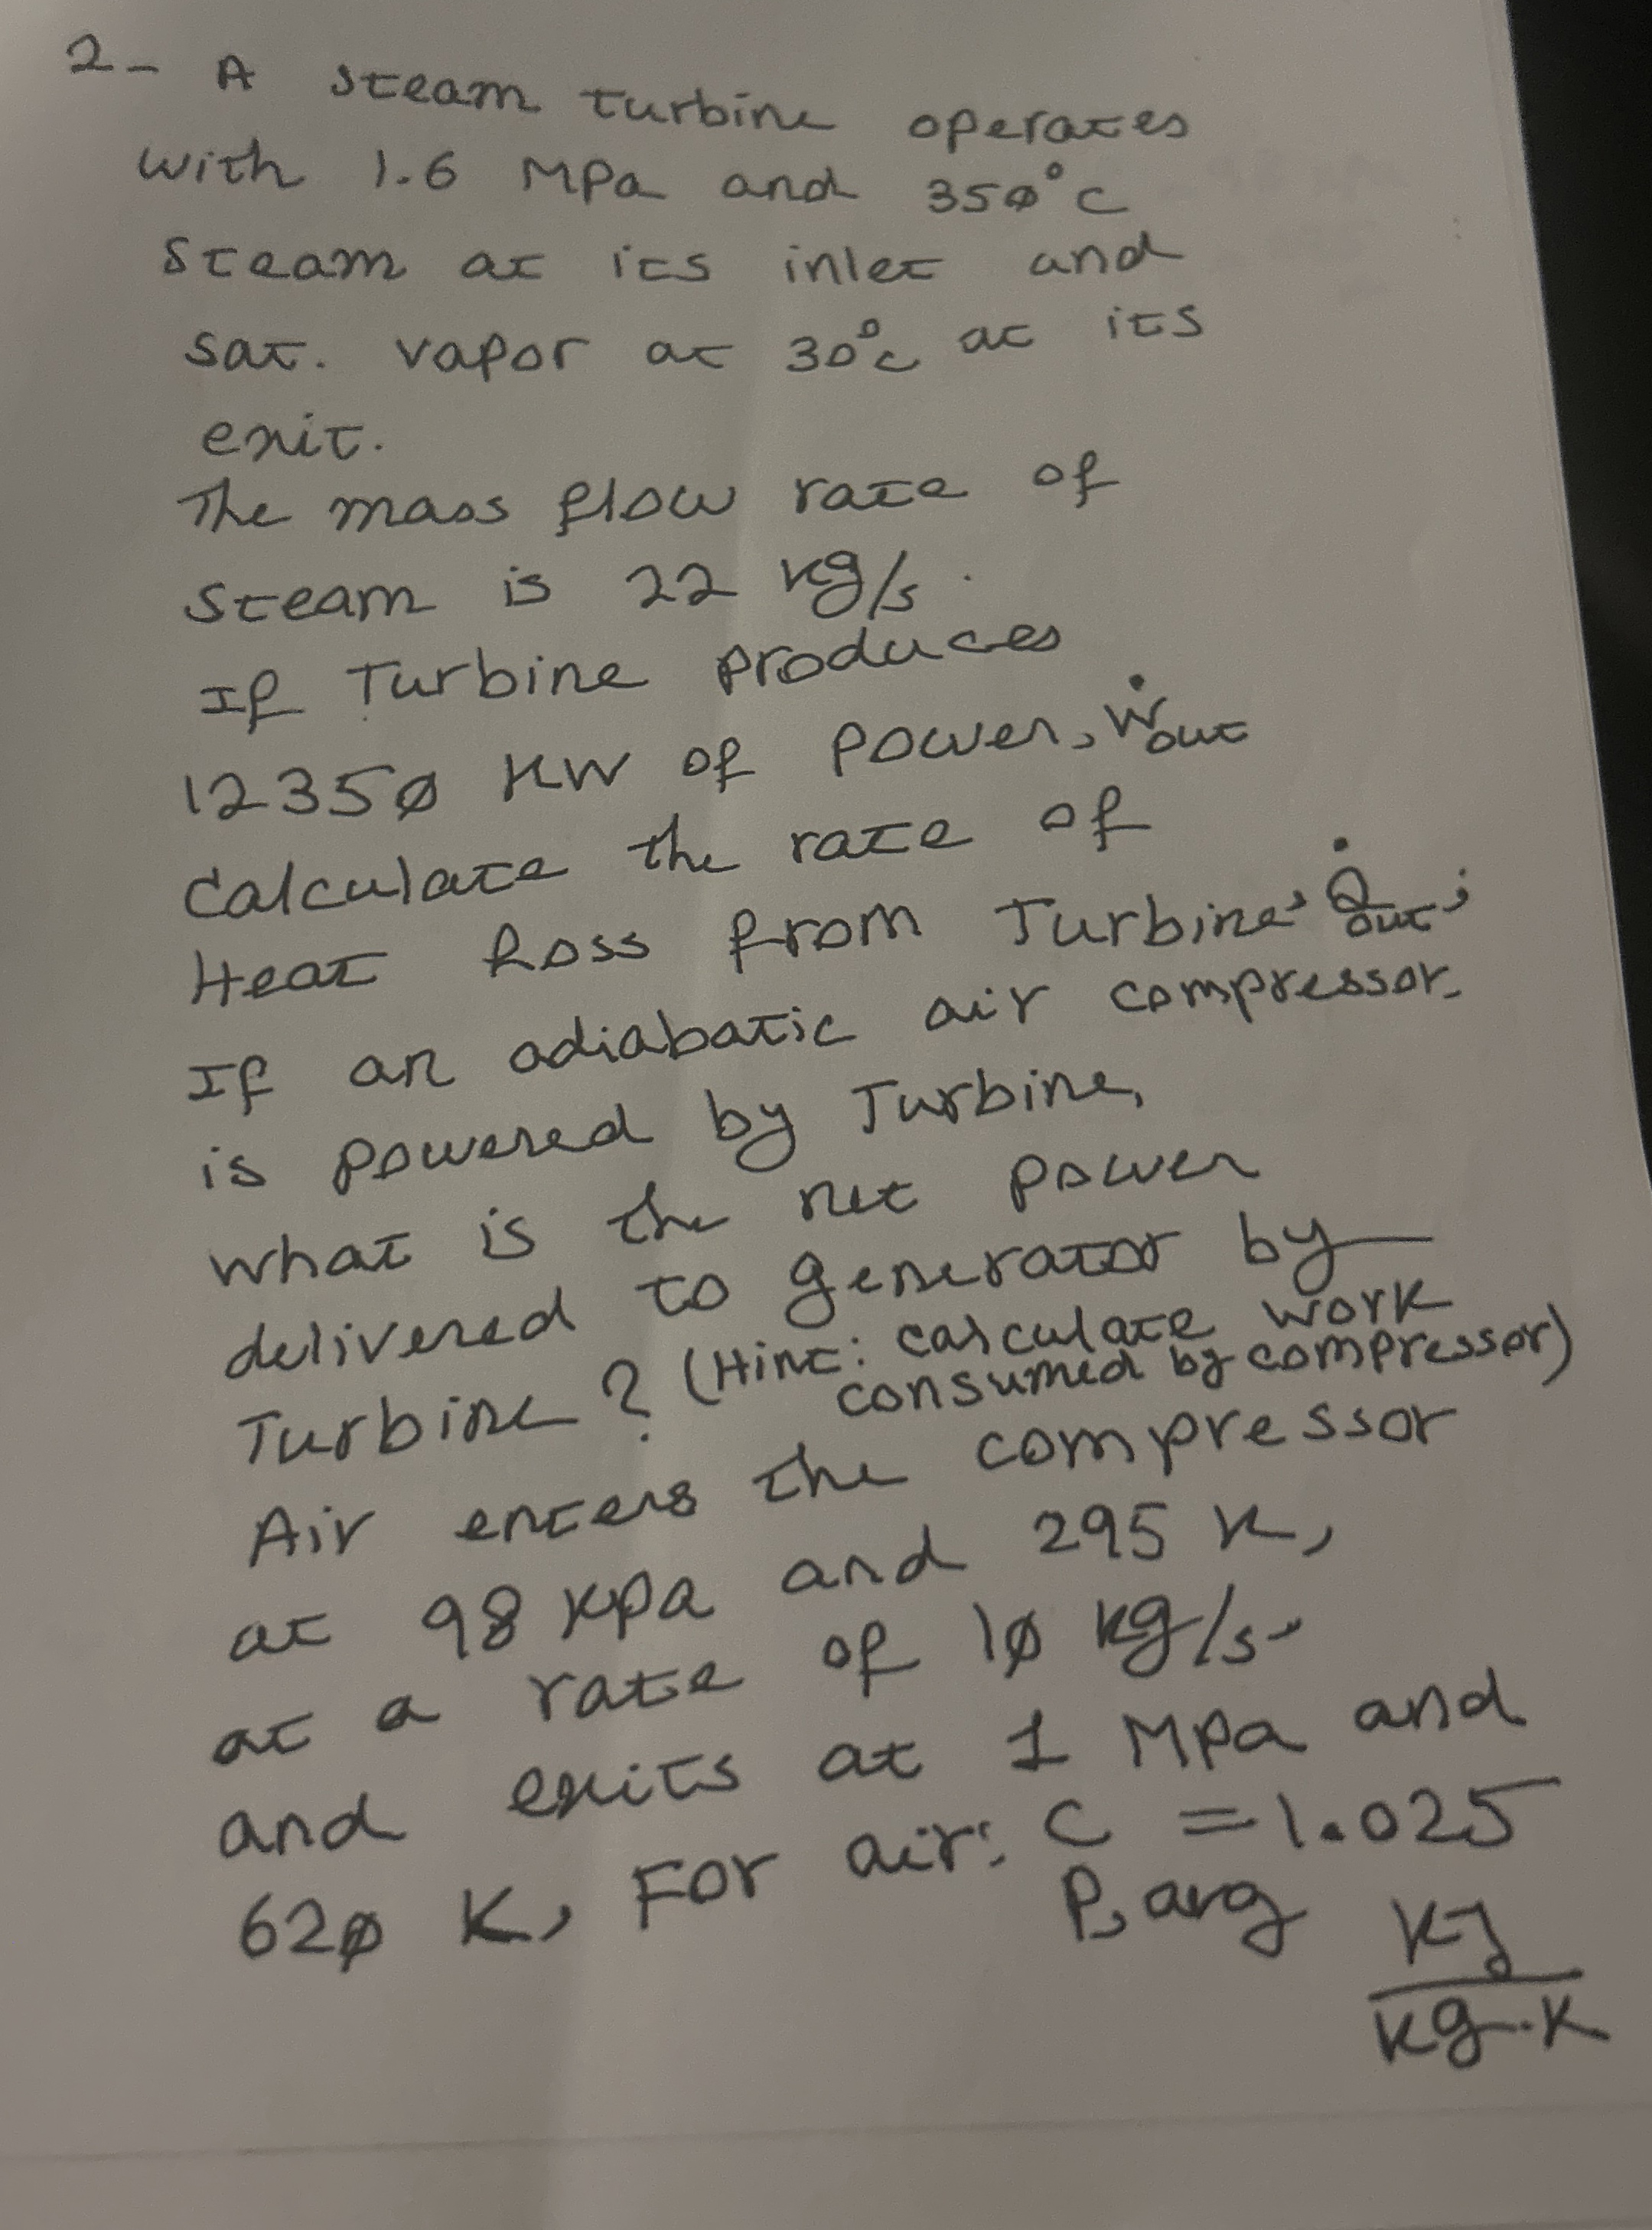 2- A steam turbine operates
with 1.6 MPa and 350°C
steam at its inlet and
sat. vapor at 30°C at its
exit.
The mass flow rate of
steam is 22 kg/s.
If Turbine produces
12350 KW of power, Ẇout
Calculate the rate of
Heat Loss from Turbine, Q̇out;
If an adiabatic air compressor
is powered by Turbine,
what is the net power
delivered to generator by
Turbine? (Hint: calculate work
consumed by compressor)
Air enters the compressor
at 98 kPa and 295 K,
at a rate of 10 kg/s
and exits at 1 MPa and
620 K, For air: C = 1.025
P, avg KJ
kg.K